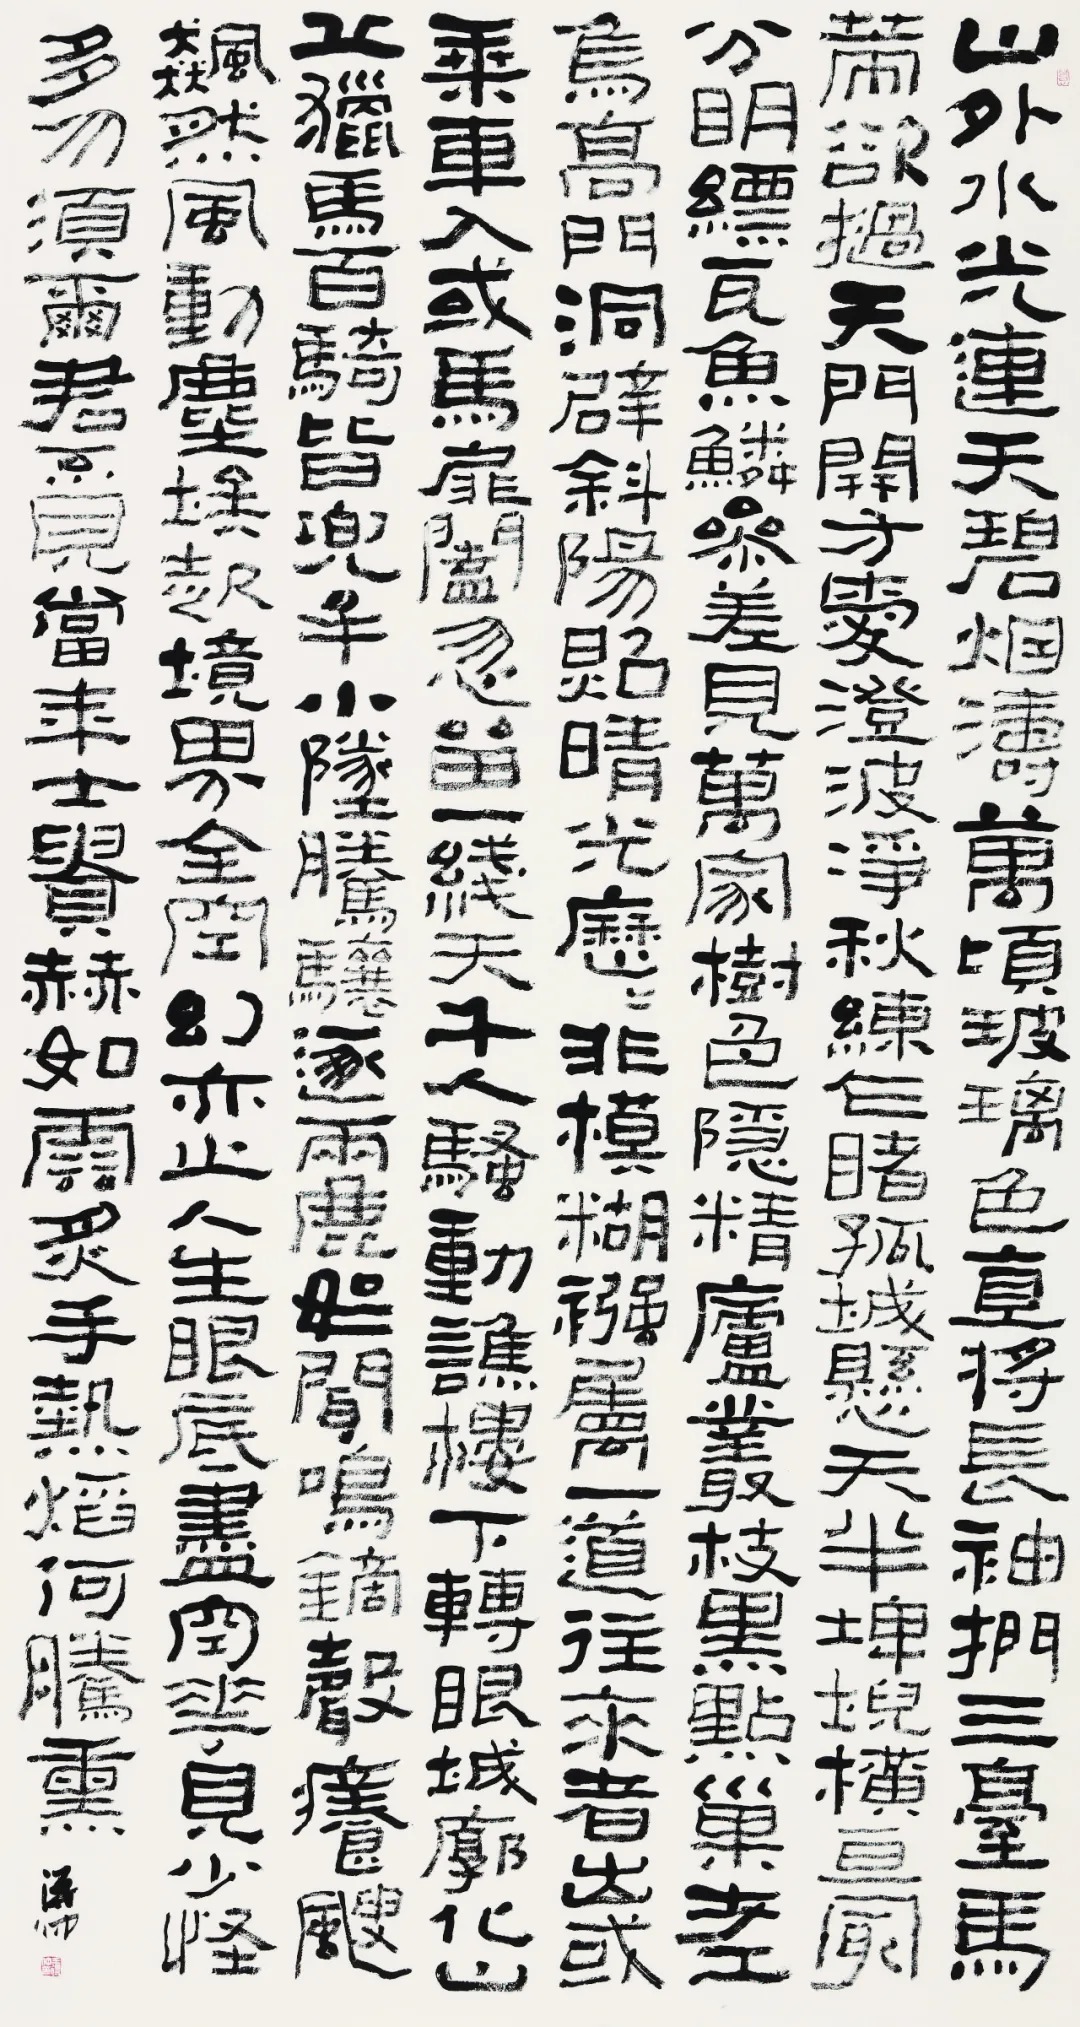 山外水光連天碧烟濤萬頃玻璃色直將長袖捫三臺馬
策欲撾天門開方愛澄波淨秋練乍睹孤城懸天半埤堄橫亘最
分明縹瓦魚鱗參差見萬家樹色隱精廬叢枝黑點巢老
烏高門洞辟斜陽照晴光歷〻非模糊襁屬一道往來者出或
乘車入或馬扉闔忽留一綫天千人騷動譙樓下轉眼城廓化山
丘獵馬百騎皆兜牟小墜騰驤逐兩鹿如聞鳴鏑聲颼
飈然風動塵埃起境界全空幻亦止人生眼底盡空華見少怪
多勿須爾君不見當年士貴赫如雲炙手熱焰何騰熏